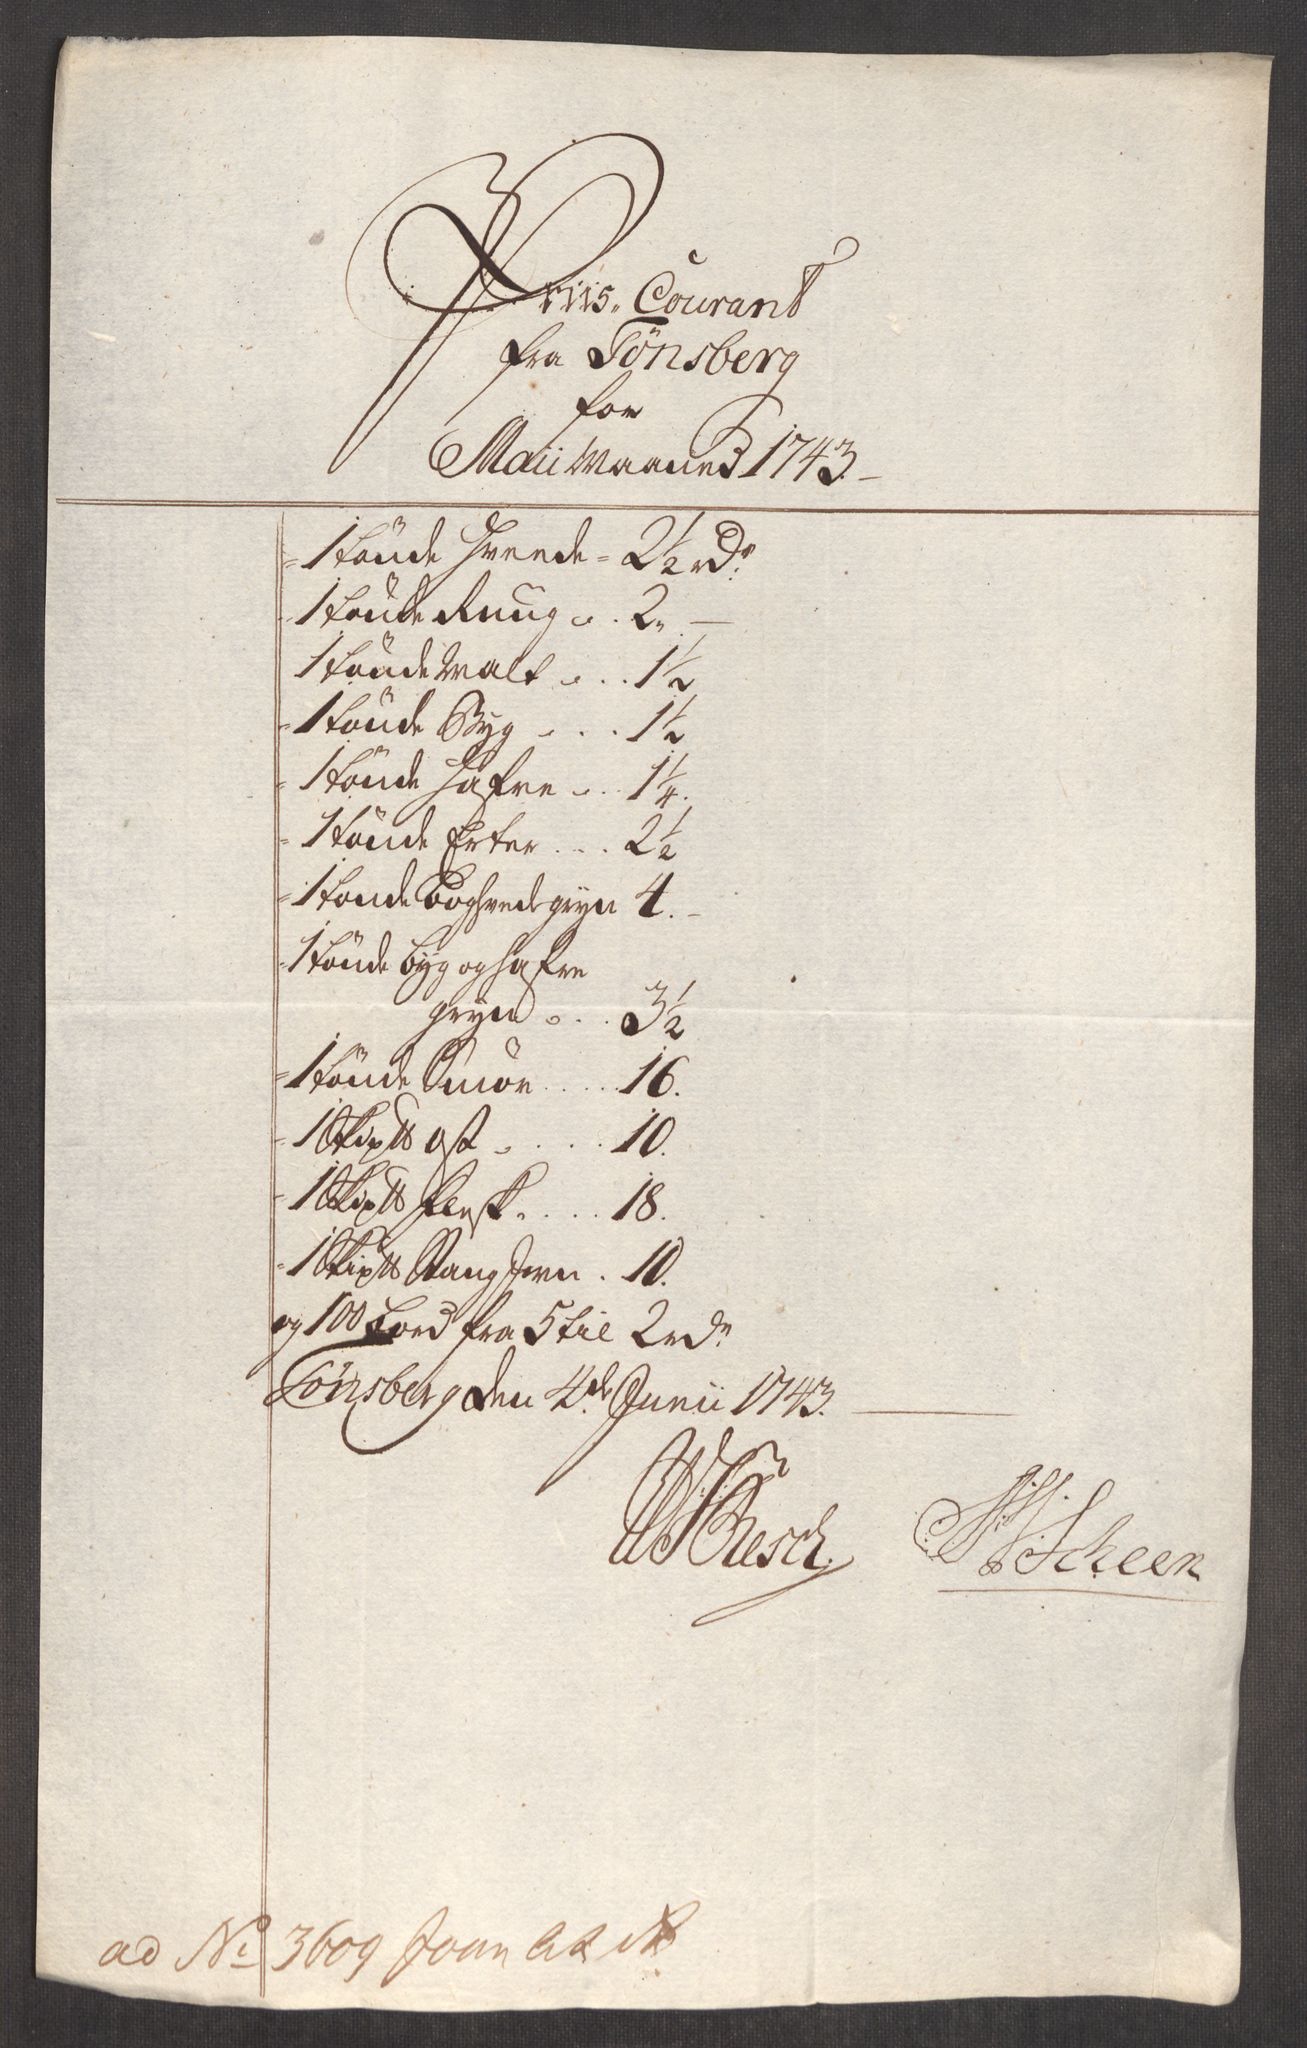 Priis, Courant
fra Tönsberg
for
Maii Maaned 1743.
1 tönde Hveede 2 1/2 rd.
1 tönde Ruug 2
1 tönde Malt 1 1/2
1 tönde Byg 1 1/2
1 tönde Hafre 1 1/4
1 tönde Erter 2 1/2
1 tönde Boghvede gryn 4.
1 tönde byg og Hafre
gryn 3 1/2
1 tönde Smör 16.
1 Skip℔ ost 10.
1 Skip℔ flesk 18.
1 Skip℔ Stang Jern 10.
og 100 bord fra 5 til 2 rd.
Tönsberg den 4de Junii 1743.
Resch. Scheen
ad No 3609